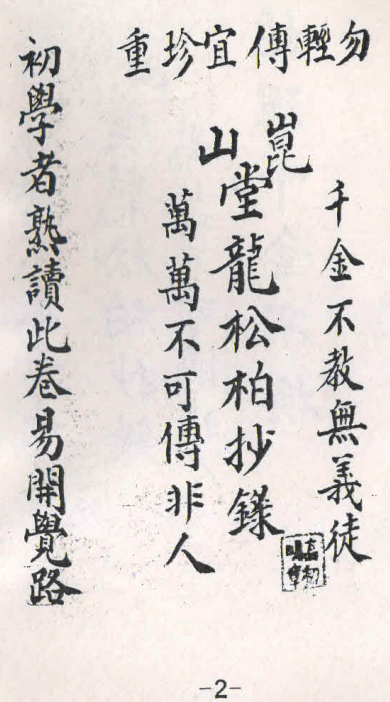 勿輕傳宜珍重
千金不教無義徒
崑山堂龍松柏抄錄
萬萬不可傳非人
初學者熟讀此卷易開覺路
-2-